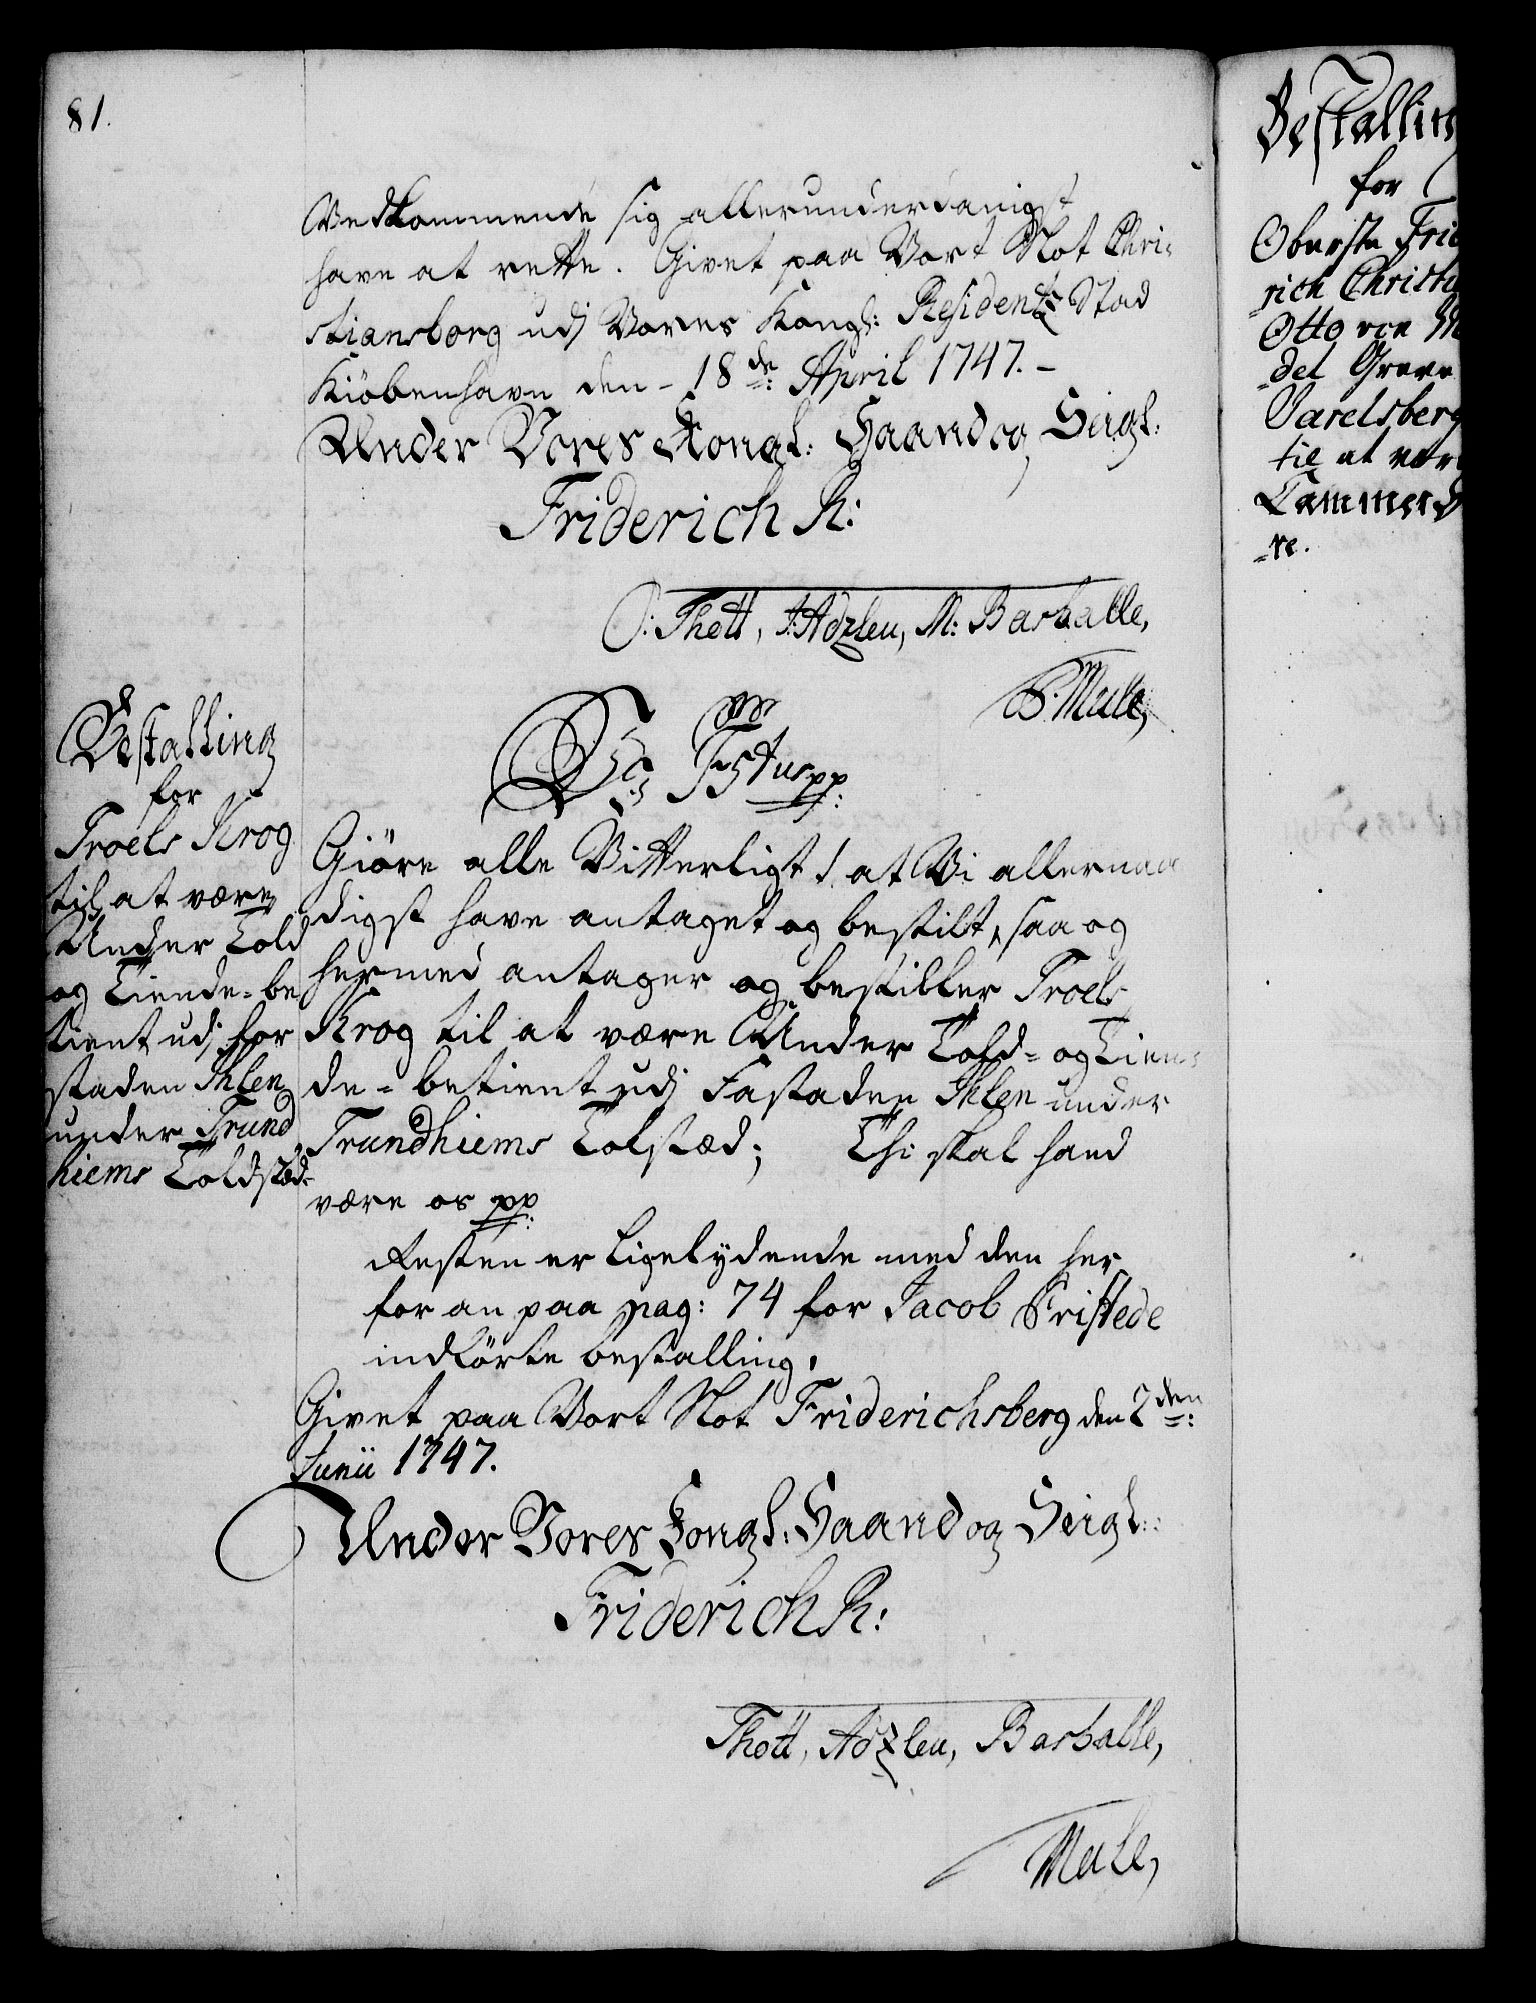 81.
Vedkommende sig allerunderdanigst
have at rette. Givet paa Vort Slot Chri-
stiansborg udj Vores Kongl: Residentz Stad
Kiöbenhavn den 18de: April 1747.
Under Vores Kongl: Haand og Seigl:
Friderich R:
O: Thott, J: Adzleu, M: Barhalle,
P. Mule,
Bestalling
for
Troels Krog
til at være
Under Told
og Tiende-be
tient udj for
staden Ihlen
under Trund
hiems Toldstæd
pp:
Giöre alle Vitterligt, at Vi allernaa
digst have antaget og bestilt, saa og
hermed antager og bestiller Troels
Krog til at være Under Told- og Tien-
de-betient udj Fastaden Ihlen under
Trundhiems Tolstæd; Thi skal hand
være os pp:
Resten er Ligelydende med den her
for an paa pag: 74 for Jacob Fristede
indförte bestalling,
Givet paa Vort Slot Friderichsberg den 2den:
Junii 1747.
Under Vores Kongl: Haand og Seigl:
Friderich R:
Thott, Adzleu, Barhalle,
Mule,
Bestalling
for
Oberste Frie
rich Christi
Otto von
det Greve
Varelsberg
til at være
Cammer
re.